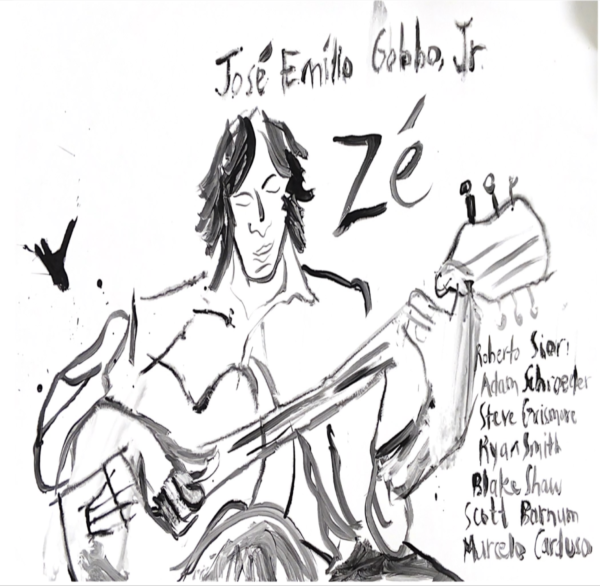 José Emílio Gobbo, Jr.
Zé
Roberto Sion
Adam Schroeder
Steve Grismore
Ryan Smith
Blake Shaw
Scott Barnum
Marcelo Cardoso